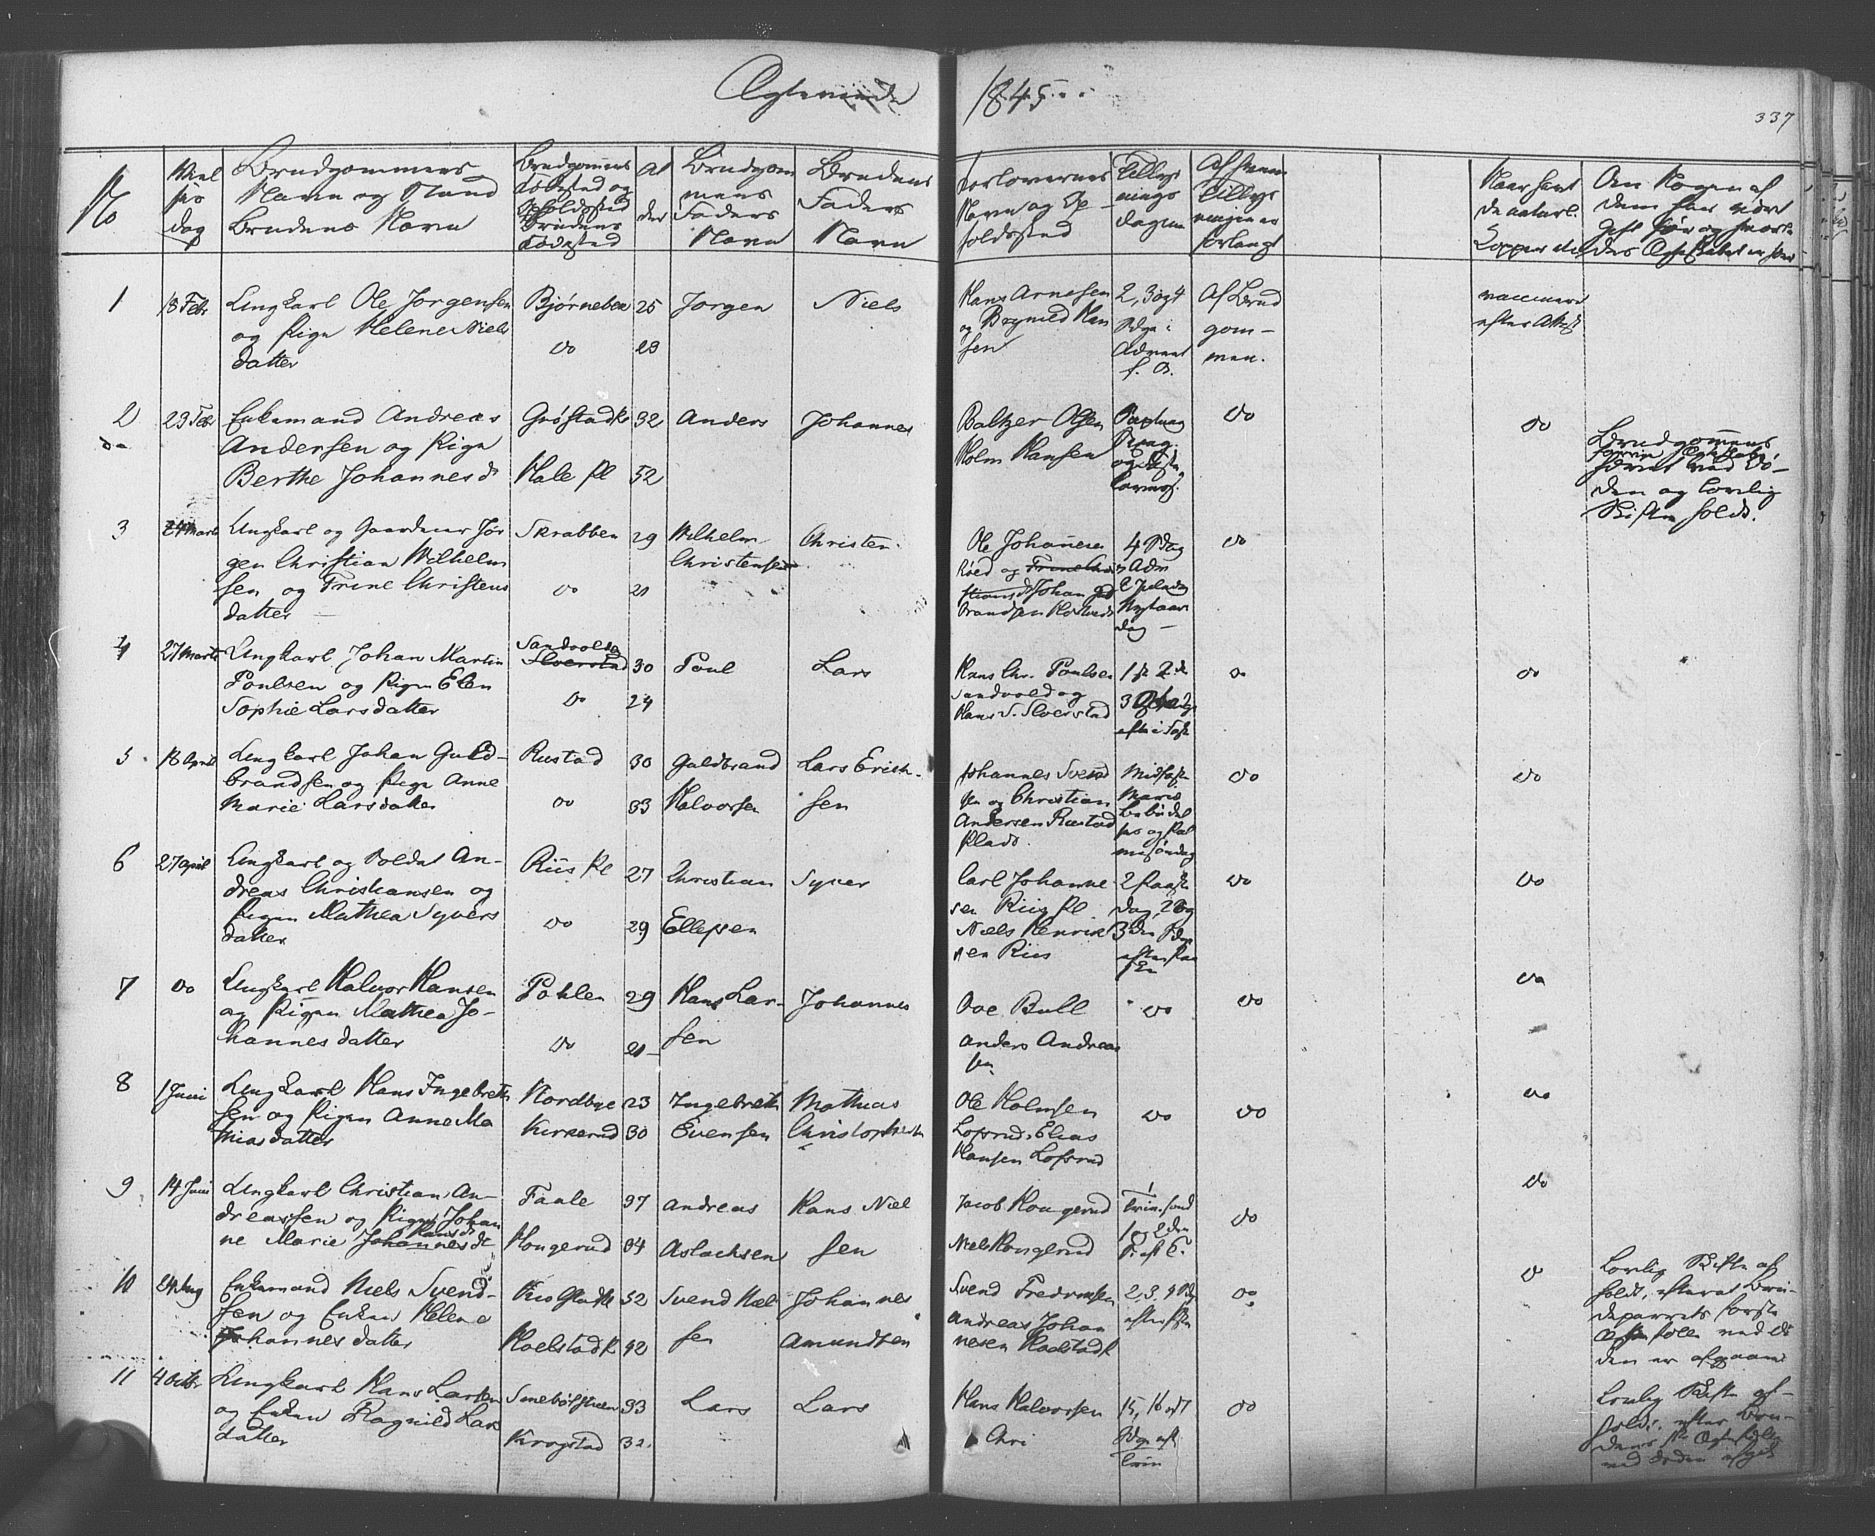 Ægteviede 1845
337
No
Viel
ses
dag
Brudgommens
Navn og Stand
Brudens Navn
Brudgommens
Fødested og
Opholdsted
Brudens
Fødested
Al
der
Brudgom
mens
Faders
Navn
Brudens
Faders
Navn
Forlovernes
Navn og Op
holdssted
Tillys
nings
dagene
Af hvem
Tillys
ningen er
forlangt
Naar havt
de naturl.
Kopper
Om Nogen af
dem har været
gift før og
1
18 Febr
Ungkarl Ole Jørgensen
og Pige Helene Niels
datter
Bjørnebek
do
25
23
Jørgen
Niels
Hans Arnesen
og Brynild Han
sen
2, 3 og 4
Sdge i
Advent
f. A.
Af Brud
gom-
men.
vaccinered
efter Attest
2
23 Febr
Enkemand Andreas
Andersen og Pige
Berthe Johannesdr
Hale Pl
32
52
Anders
Johannes
Baltzer Olsen
Holm Hansen
do
do
Brudgommens
den og lovlig
Skifte holdt.
3
24 Marts
Ungkarl og Gaardener Jør
gen Christian Wilhelm
sen og Trine Christens
datter
Skrabben
do
29
21
Wilhelm
Christensen
Christen
Ole Johannesen
Røed og
Johan Guld
brandsen
4 Sdag
i Adv
Nytaars
dag
do
4
27 Marts
Ungkarl Johan Martin
Poulsen og Pigen Elen
Sophie Larsdatter
Sandvolden
do
30
24
Poul
Lars
Hans Chr. Poulsen
Sandvold og
Hans S.
do
do
5
18 April
Ungkarl Johan Guld-
brandsen og Pige Anne
Marie Larsdatter
Rustad
do
30
33
Guldbrand
Halvorsen
Lars Erich-
sen
Johannes Svend
sen og Christian
Andersen Rustad
Plads.
Midfaste
Mariæ
Bebudel
ses og Pal
mesøndag
do
do
6
27 April
Ungkarl og Soldat An-
dreas Christiansen og
Pigen Mathea Syvers
datter
Riis Pl
do
27
29
Christian
Ellefsen
Syver
Carl Johanne
sen Riis Pl.
Niels Henrik
sen Riis
2 Paaske
dag, 2 og
3 den Sdge
efter Paa
ske
do
do
7
do
Ungkarl Halvor Hansen
og Pigen Mathea Jo-
hannesdatter
Pohlen
do
29
21
Hans Lar-
sen
Johannes
Ove Bull
Anders Andreas
sen
do
do
do
8
1 Juni
Ungkarl Hans Ingebrett
sen og Pigen Anne Ma
thiasdatter
Nordbye
Kirkerud
23
30
Ingebrett
Evensen
Mathias
Christophersen
Ole Holmsen
Lofsrud, Elias
Hansen Lofsrud
do
do
do
9
14 Juni
Ungkarl Christian An-
dreassen og Pigen Johan
ne Marie Hansdr
Johannesdr
Faale
Hougerud
37
34
Andreas
Aslachsen
Hans Niel
sen
Jacob Hougerud
Niels Hougerud
Trin. sønd
1 og 2 den
S. eft T.
do
do
10
24 Aug
Enkemand Niels Svend-
sen og Enken Helene
Johannesdatter
52
42
Svend Niel
sen
Johannes
Amundsen
Svend Fredriksen
Andreas Johan
nesen
2, 3, 4 Sdg
do
do
Lovlig Skifte af
holdt, efterat Bru
deparrets første
Ægtefolle ved Dø
den er afgaaet
11
4 Octbr
Ungkarl Hans Larsen
og Enken Ragnild Lars
datter
Krogstad
33
32
Lars
Lars
Hans Halvorsen
Chri
15, 16 og 17
Sdge eft
Trin
do
Lovlig Skifte af-
holdt, efter Bru-
dens 1ste Ægtefolle
ved Døden afgik